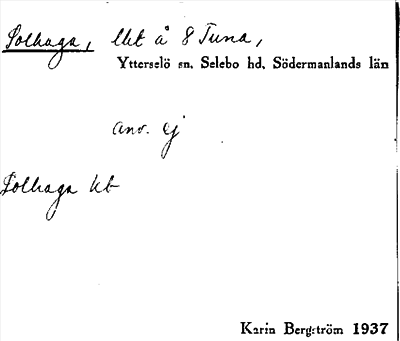 Solhaga, lht å 8 Tuna,
Ytterselö sn, Selebo hd, Södermanlands län
anv. ej
Solhaga kb
Karin Bergström 1937